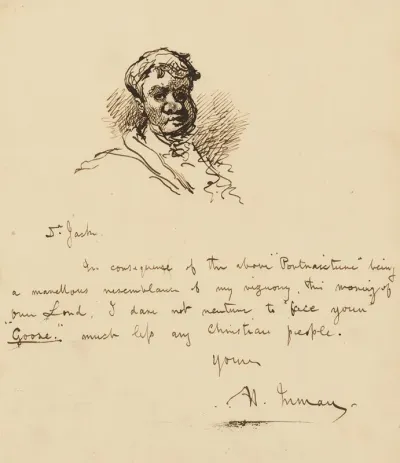 Dr Jack.
In consequence of the above "Portraicture" being
a marvellous resemblance of my vignomy, this morning of
our Lord, I dare not venture to "face your
Goose." much less any Christian people.
Yours
H. Inman